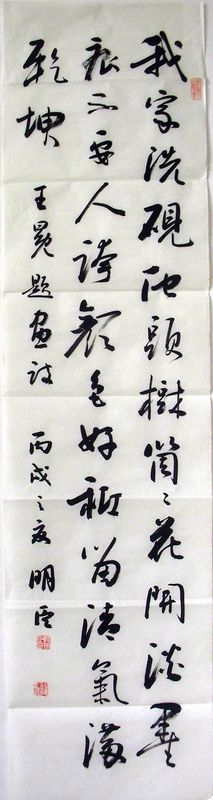 我家洗硯池頭樹箇〻花開淡墨
痕不要人誇顏色好祗留清氣滿
乾坤
王冕題畫詩 丙戌之夏 明